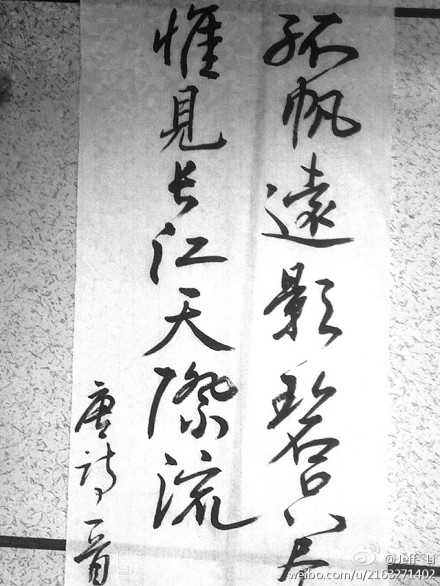 孤帆遠影碧空尽
惟見长江天際流
唐詩一首
weibo.com/u/2163271402